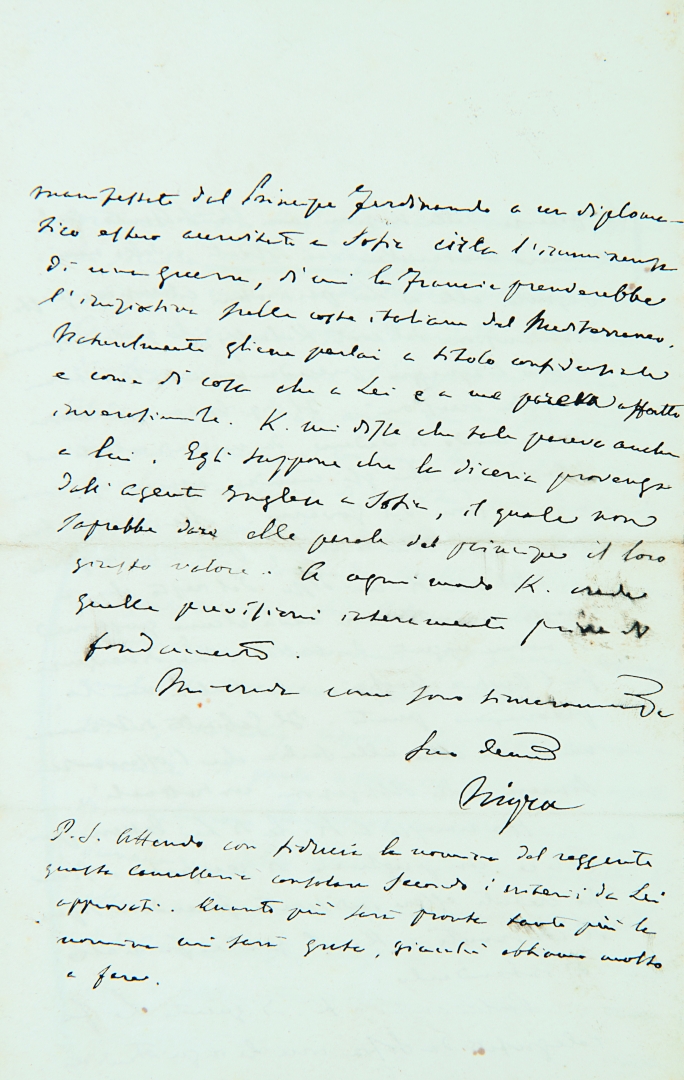 manifestate dal Principe Ferdinando a un diploma-
tico estero accreditato a Sofia circa l'imminenza
di una guerra, di cui la Francia prenderebbe
l'iniziativa sulle coste italiane del Mediterraneo.
Naturalmente gliene parlai a titolo confidenziale
e come di cosa che a Lei e a me pareva affatto
inverosimile. K. mi disse che tale pareva anche
a lui. Egli suppone che la diceria provenga
dall' agente Inglese a Sofia, il quale non
saprebbe dare alle parole del principe il loro
giusto valore. A ogni modo K. crede
quelle previsioni interamente prive di
fondamento.
Mi creda come sono sinceramente
Suo
Nigra
P. S. Attendo con fiducia la nomina del reggente
questa Cancelleria consolare secondo i criterii da Lei
approvati. Quanto più sarà pronta tanto più la
nomina mi sarà grata, giacchè abbiamo molto
a fare.